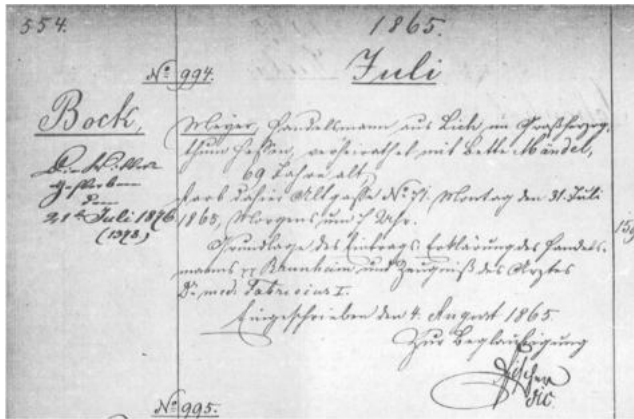 554.
1865.
Juli
No 994.
Bock,
Die Wittwe
gestorben
den
21ten Juli 1876
(1373)
Meyer, Handelsmann aus Lich, im Großherzog-
thum Hessen, verheirathet mit Bette Mändel,
69 Jahre alt,
starb dahier Allgasse No 71. Montag den 31. Juli
1865, Morgens um 7 Uhr.
Grundlage des Eintrags: Erklärung des Handels-
manns Bannheim und Zeugniß des Arztes
Dr med. Fabricius I.
Eingeschrieben den 4. August 1865.
Zur Beglaubigung
Fischer
No 995.